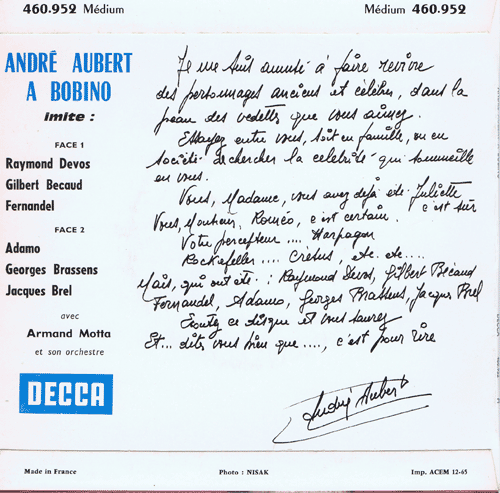 460.952 Médium
Médium 460.952
ANDRÉ AUBERT
A BOBINO
imite :
FACE 1
Raymond Devos
Gilbert Becaud
Fernandel
FACE 2
Adamo
Georges Brassens
Jacques Brel
avec
Armand Motta
et son orchestre
DECCA
Je me suis amusé à faire revivre
des personnages anciens et célèbres, dans la
peau des vedettes que vous aimez.
Essayez entre vous, soit en famille, ou en
société de chercher la célébrité qui sommeille
en vous.
Vous, Madame, vous avez déjà été Juliette
c'est sûr
Vous, Monsieur, Roméo, c'est certain.
Votre percepteur .... Harpagon
Rockefeller .... Crésus, etc. etc....
Mais, qui ont été : Raymond Devos, Gilbert Bécaud
Fernandel, Adamo, Georges Brassens, Jacques Brel
Ecoutez ce disque et vous saurez
Et... dites vous bien que ...., c'est pour rire
André Aubert
Made in France
Photo : NISAK
Imp. ACEM 12-65